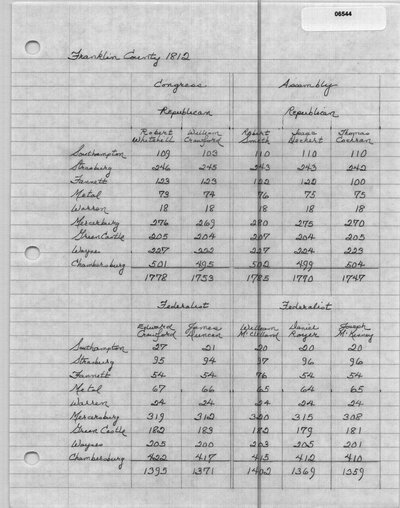 08544
Franklin County 1812
Congress Assembly
Republican Republican
Robert Whitehill William Crawford Robert Smith Jacob Dechert Thomas Cochran
Southampton 109 103 110 110 110
Strasburg 246 245 243 243 242
Fannett 123 123 122 122 100
Metal 73 74 76 75 75
Warren 18 18 18 18 18
Mercersburg 276 269 280 275 270
Green Castle 205 204 207 204 205
Waynes 227 222 227 224 223
Chambersburg 501 495 502 499 504
1778 1753 1785 1770 1747
Federalist Federalist
Edward Crawford James Duncan William McClelland Daniel Royer Joseph McKinney
Southampton 27 21 20 20 20
Strasburg 95 94 97 96 96
Fannett 54 54 76 54 54
Metal 67 66 65 64 65
Warren 24 24 24 24 24
Mercersburg 319 312 320 315 308
Green Castle 182 183 182 179 181
Waynes 205 200 203 205 201
Chambersburg 422 417 415 412 410
1395 1371 1402 1369 1359